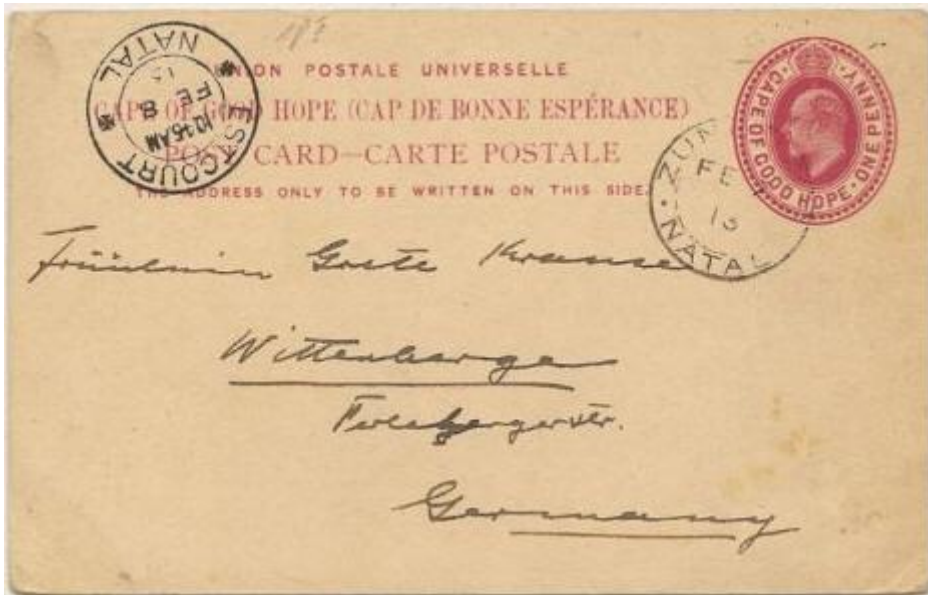 UNION POSTALE UNIVERSELLE
CAPE OF GOOD HOPE (CAP DE BONNE ESPÉRANCE)
POST CARD—CARTE POSTALE
THE ADDRESS ONLY TO BE WRITTEN ON THIS SIDE.
ESTCOURT NATAL
10 15 AM
FE 8
13
CAPE OF GOOD HOPE · ONE PENNY
NATAL
FE
13
Fräulein Grete Krause
Wittenberge
Germany